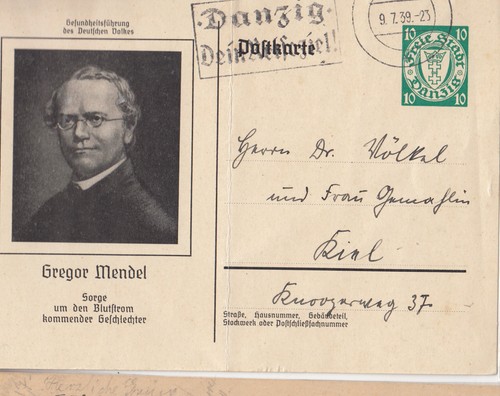 Gesundheitsführung
des Deutschen Volkes
Gregor Mendel
Sorge
um den Blutstrom
kommender Geschlechter
Danzig
Dein Reiseziel!
Postkarte
9.7.39.-23
10 10
Freie Stadt
Danzig
10 10
Herrn Dr. Völkel
und Frau Gemahlin
Kiel
Knooperweg 37
Straße, Hausnummer, Gebäudeteil,
Stockwerk oder Postschließfachnummer